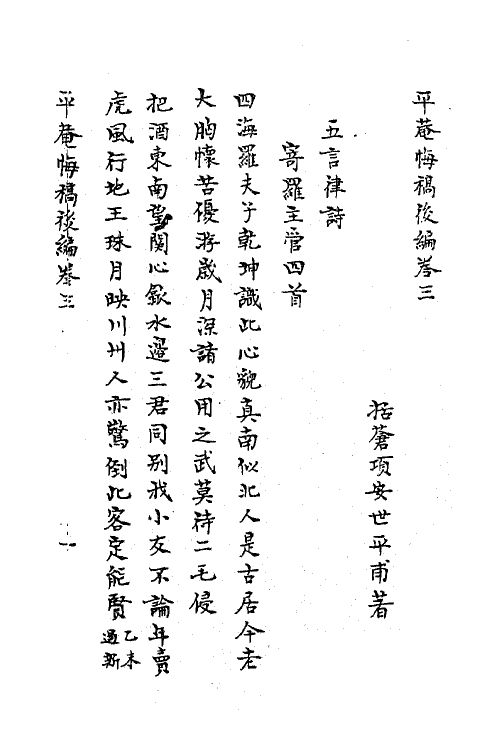 平菴悔稿後編卷三
括蒼項安世平甫著
五言律詩
寄羅主管四首
四海羅夫子乾坤識此心貌真南似北人是古居今老
大胸懷苦優游歲月深諸公用之武莫待二毛侵
把酒東南望關心歙水邊三君同别我小友不論年賣
虎風行地王珠月映川州人亦驚倒此客定能賢乙未
過新
平菴悔稿後編卷三
一